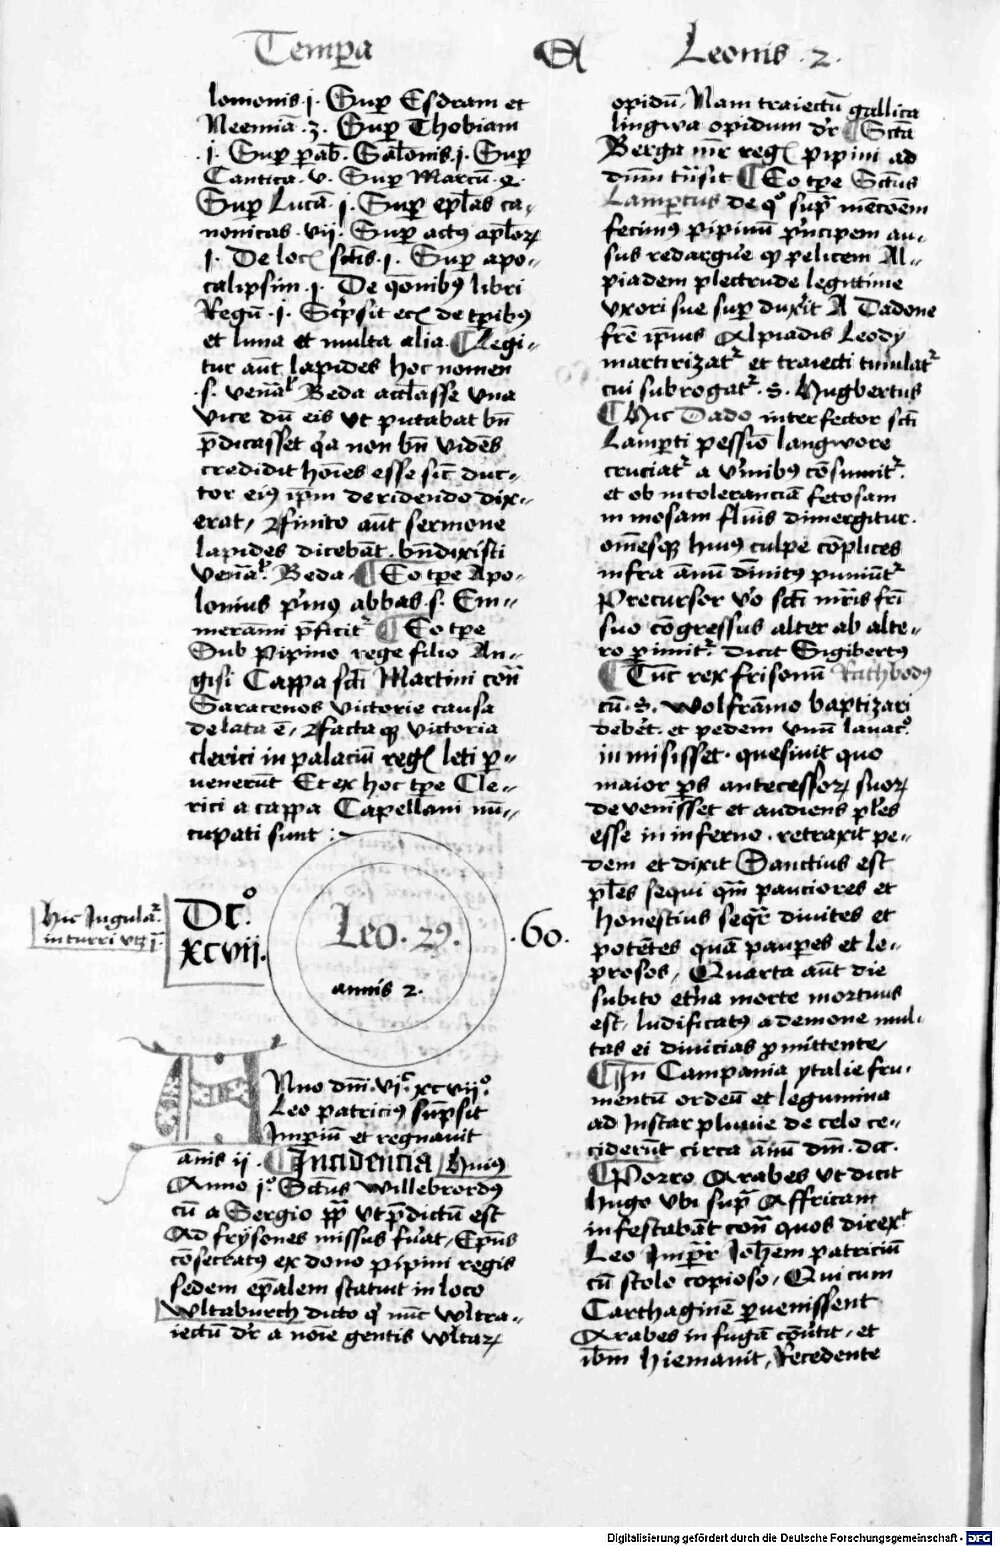 Tempa Et Leonis . 2 .
lomonis .j. Sup Esdram et
Neemiā . 3 . Sup Thobiam
.j. Sup pab. Salonis .j. Sup
Cantica . v . Sup Marcū . 2 .
Sup Lucā .j. Sup eplas ca-
nonicas . vij . Sup actꝰ aplorꝝ
j. De locꝭ sctis .j. Sup apo-
calipsim .j. De q̄onibꝫ libri
Regū .j. Scpsit ecꝭ de tpibꝫ
et luna et multa alia ¶ Legi-
tur aūt lapides hoc nomen
.s. venāl Beda acclasse vna
vice dū eis vt putabat bn̄
p̄dicasset qa non bn̄ vides
credidit hoīes esse sic duc-
tor eiꝰ ipm deridendo dix-
erat / finito aūt sermone
lapides dicebāt . bn̄dixisti
venāl Beda ¶ Eo tpe Apo-
lonius pmꝰ abbas s. Em-
merammi p̄ficit ¶ Eo tpe
Sub Pipino rege filio An-
gisi Cappa scti Martini cont
Saracenos victorie causa
delata ē / facta qꝫ victoria
clerici in palaciū regꝭ leti p-
venerūt Et ex hoc tpe Cle-
rici a cappa Capellani nū-
cupati sunt :~
Hic Jugulat
in turri
Dc°
xcvij.
Leo . 29.
annis 2.
. 60 .
Anno dm̄ . vjc xcvij°
Leo patriciꝰ supsit
Jmpiū et regnauit
ānis ij . ¶ Incidencia Huiꝰ
Anno j° Sctus Willebrordꝰ
cū a Sergio pp vt pdictū est
Ad frysones missus fuat / Epus
cōsecratꝰ ex dono pipini regis
sedem epalem statuit in loco
Wltaburch dicto qd nūc Wltra-
iectū dr a noīe gentis wltarꝝ
opidū / Nam traiectū gallica
lingwa opidum dr ¶ Scta
Berga mr regꝭ pipini ad
dnm tūsit ¶ Eo tpe Sctus
Lampertus de qo supa mēcoem
fecimꝰ pipinū pncipem au-
sus redargue qp pelicem Al-
piadem plectrude legittime
vxori sue sup duxit A Dadone
fre ipius Alpiadis Leody
martirizat et traiecti tumulat
cui subrogat . S . Hugbertus
¶ Hic Dado interfector scti
Lamperti pessio langwore
cruciat a vmibꝫ cōsumit
et ob intoleranciā fetosam
in mosam fluīs dimergitur .
omēsqꝫ huiꝰ culpe cōplices
infra annū dinitꝰ puniūt
Precursor vo scti mris fri
suo cōgressus alter ab alte-
ro pimit . dicit Sigibertꝰ
¶ Tūc rex frisonū Rathbodꝰ
cū . s . wolframmo baptizari
debet . et pedem vnū lauac°
inmisisset . quesiuit quo
maior ps antecessorꝝ suorꝝ
devenisset et audiens ples
esse in inferno . retraxit pe-
dem et dixit Sanctius est
ples sequi qm pauciores et
honestius sequr diuites et
potētes quā paupes et le-
prosos / Quarta aūt die
subito etna morte mortuus
est / ludificatꝰ a demone mul-
tas ei diuicias pmittente /
¶ In Campania ytalie fru-
mentū ordeū et legumina
ad Instar pluuie de celo ce-
ciderūt circa annū dm̄ . dc̄ .
¶ Porro Arabes vt dicit
hugo vbi supa Affricam
infestabāt cont quos dirext
Leo Jmpr Johem patriciū
cū stolo copioso / Qui cum
Carthaginē puenissent
Arabes in fugā cōutit / et
ibm hiemauit / Recedente
Digitalisierung gefördert durch die Deutsche Forschungsgemeinschaft - DFG